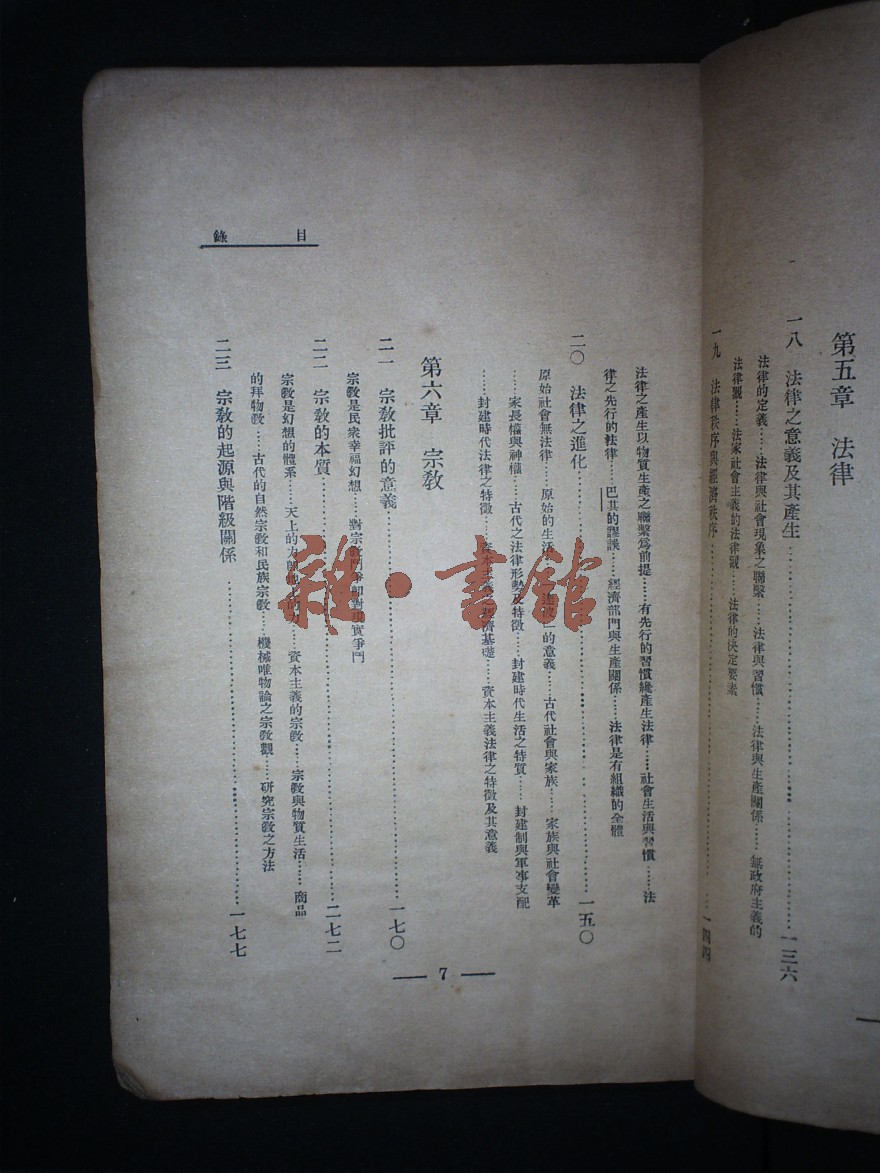 第五章　法律
一八　法律之意義及其產生……一三六
法律的定義……法律與社會現象之聯繫……法律與習慣……法律與生產關係……無政府主義的
法律觀……法家社會主義的法律觀……法律的決定要素
一九　法律秩序與經濟秩序……一四四
目錄
法律之產生以物質生產之聯繫爲前提……有先行的習慣纔產生法律……社會生活與習慣……法
律之先行的法律……巴其的謬誤……經濟部門與生產關係……法律是有組織的全體
二〇　法律之進化……一五〇
原始社會無法律……原始的生活……的意義……古代社會與家族……家族與社會變革
……家長權與神權……古代之法律形勢及特徵……封建時代生活之特質……封建制與軍事支配
……封建時代法律之特徵……資本主義之經濟基礎……資本主義法律之特徵及其意義
第六章　宗教
二一　宗教批評的意義……一七〇
宗教是民衆幸福幻想……對宗教鬥爭卽對現實爭鬥
二二　宗教的本質……一七二
宗教是幻想的體系……天上的……資本主義的宗教……宗教與物質生活……商品
的拜物教……古代的自然宗教和民族宗教……機械唯物論之宗教觀……研究宗教之方法
二三　宗教的起源與階級關係……一七七
— 7 —
雜·書館